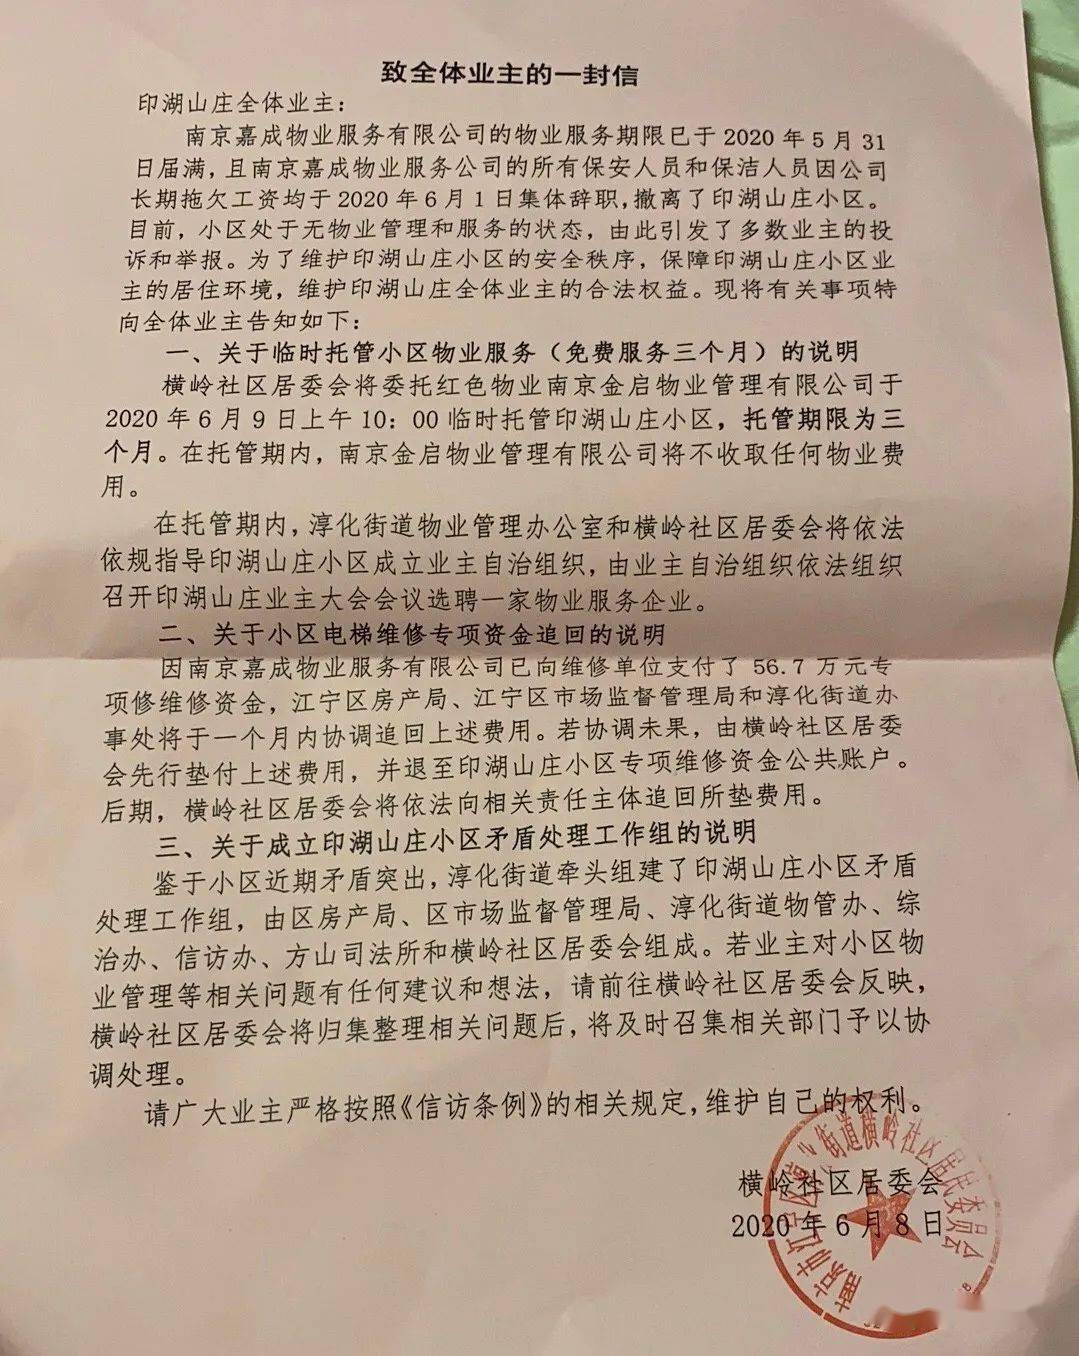 致全体业主的一封信
印湖山庄全体业主：
南京嘉成物业服务有限公司的物业服务期限已于 2020 年 5 月 31
日届满，且南京嘉成物业服务公司的所有保安人员和保洁人员因公司
长期拖欠工资均于 2020 年 6 月 1 日集体辞职，撤离了印湖山庄小区。
目前，小区处于无物业管理和服务的状态，由此引发了多数业主的投
诉和举报。为了维护印湖山庄小区的安全秩序，保障印湖山庄小区业
主的居住环境，维护印湖山庄全体业主的合法权益。现将有关事项特
向全体业主告知如下：
一、关于临时托管小区物业服务（免费服务三个月）的说明
横岭社区居委会将委托红色物业南京金启物业管理有限公司于
2020 年 6 月 9 日上午 10：00 临时托管印湖山庄小区，托管期限为三
个月。在托管期内，南京金启物业管理有限公司将不收取任何物业费
用。
在托管期内，淳化街道物业管理办公室和横岭社区居委会将依法
依规指导印湖山庄小区成立业主自治组织，由业主自治组织依法组织
召开印湖山庄业主大会会议选聘一家物业服务企业。
二、关于小区电梯维修专项资金追回的说明
因南京嘉成物业服务有限公司已向维修单位支付了 56.7 万元专
项修维修资金，江宁区房产局、江宁区市场监督管理局和淳化街道办
事处将于一个月内协调追回上述费用。若协调未果，由横岭社区居委
会先行垫付上述费用，并退至印湖山庄小区专项维修资金公共账户。
后期，横岭社区居委会将依法向相关责任主体追回所垫费用。
三、关于成立印湖山庄小区矛盾处理工作组的说明
鉴于小区近期矛盾突出，淳化街道牵头组建了印湖山庄小区矛盾
处理工作组，由区房产局、区市场监督管理局、淳化街道物管办、综
治办、信访办、方山司法所和横岭社区居委会组成。若业主对小区物
业管理等相关问题有任何建议和想法，请前往横岭社区居委会反映，
横岭社区居委会将归集整理相关问题后，将及时召集相关部门予以协
调处理。
请广大业主严格按照《信访条例》的相关规定，维护自己的权利。
横岭社区居委会
2020 年 6 月 8 日
南京市江宁区淳化街道横岭社区居民委员会